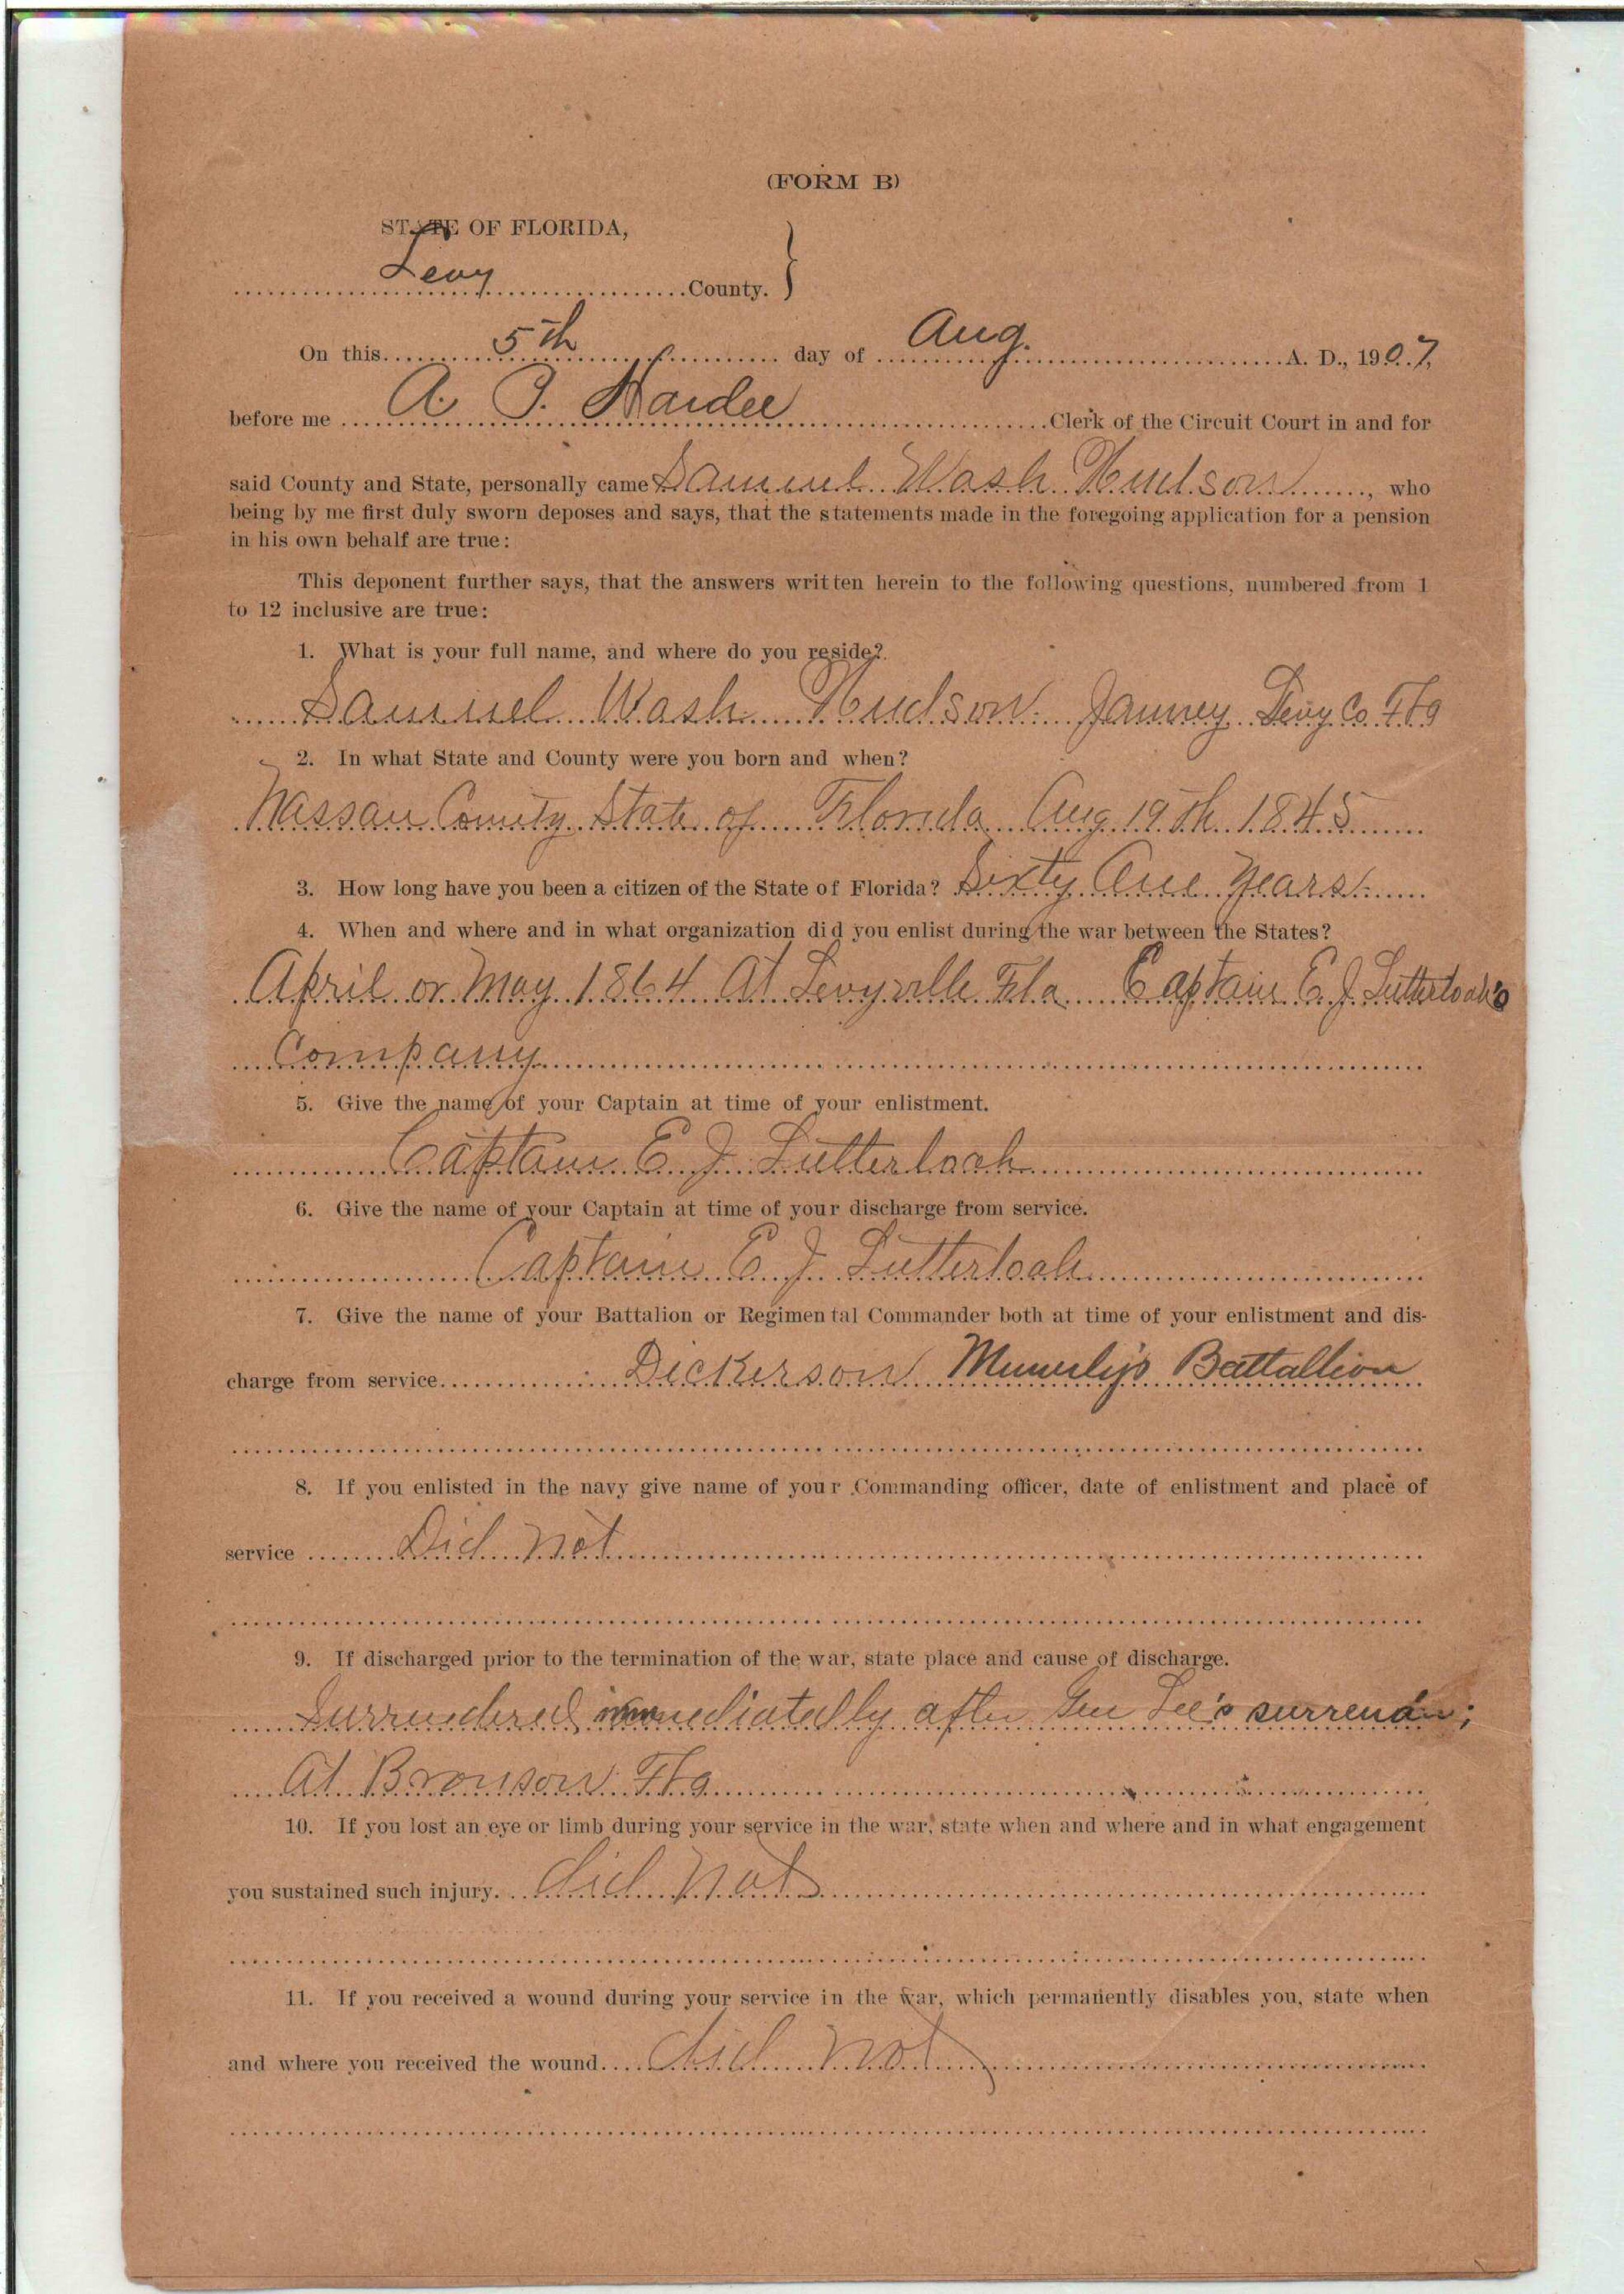 (FORM B)
STATE OF FLORIDA,
Levy County.
On this 5th day of Aug. A. D., 1907,
before me A. P. Hardee Clerk of the Circuit Court in and for
said County and State, personally came Samuel Wash Hudson, who
being by me first duly sworn deposes and says, that the statements made in the foregoing application for a pension
in his own behalf are true:
This deponent further says, that the answers written herein to the following questions, numbered from 1
to 12 inclusive are true:
1. What is your full name, and where do you reside?
Samuel Wash Hudson Janney Levy Co. Fla
2. In what State and County were you born and when?
Nassau County State of Florida Aug 19th 1845
3. How long have you been a citizen of the State of Florida? Sixty One Years
4. When and where and in what organization did you enlist during the war between the States?
April or May 1864 At Levyville Fla Captain E. J. Lutterloah's
Company
5. Give the name of your Captain at time of your enlistment.
Captain E J Lutterloah
6. Give the name of your Captain at time of your discharge from service.
Captain E. J. Lutterloah
7. Give the name of your Battalion or Regimental Commander both at time of your enlistment and dis-
charge from service Dickerson Munnerlyn's Battallion
8. If you enlisted in the navy give name of your Commanding officer, date of enlistment and place of
service Did not
9. If discharged prior to the termination of the war, state place and cause of discharge.
Surrendered immediatally after Gen Lee's surrender;
At Bronson Fla
10. If you lost an eye or limb during your service in the war, state when and where and in what engagement
you sustained such injury. did not
11. If you received a wound during your service in the war, which permanently disables you, state when
and where you received the wound. did not